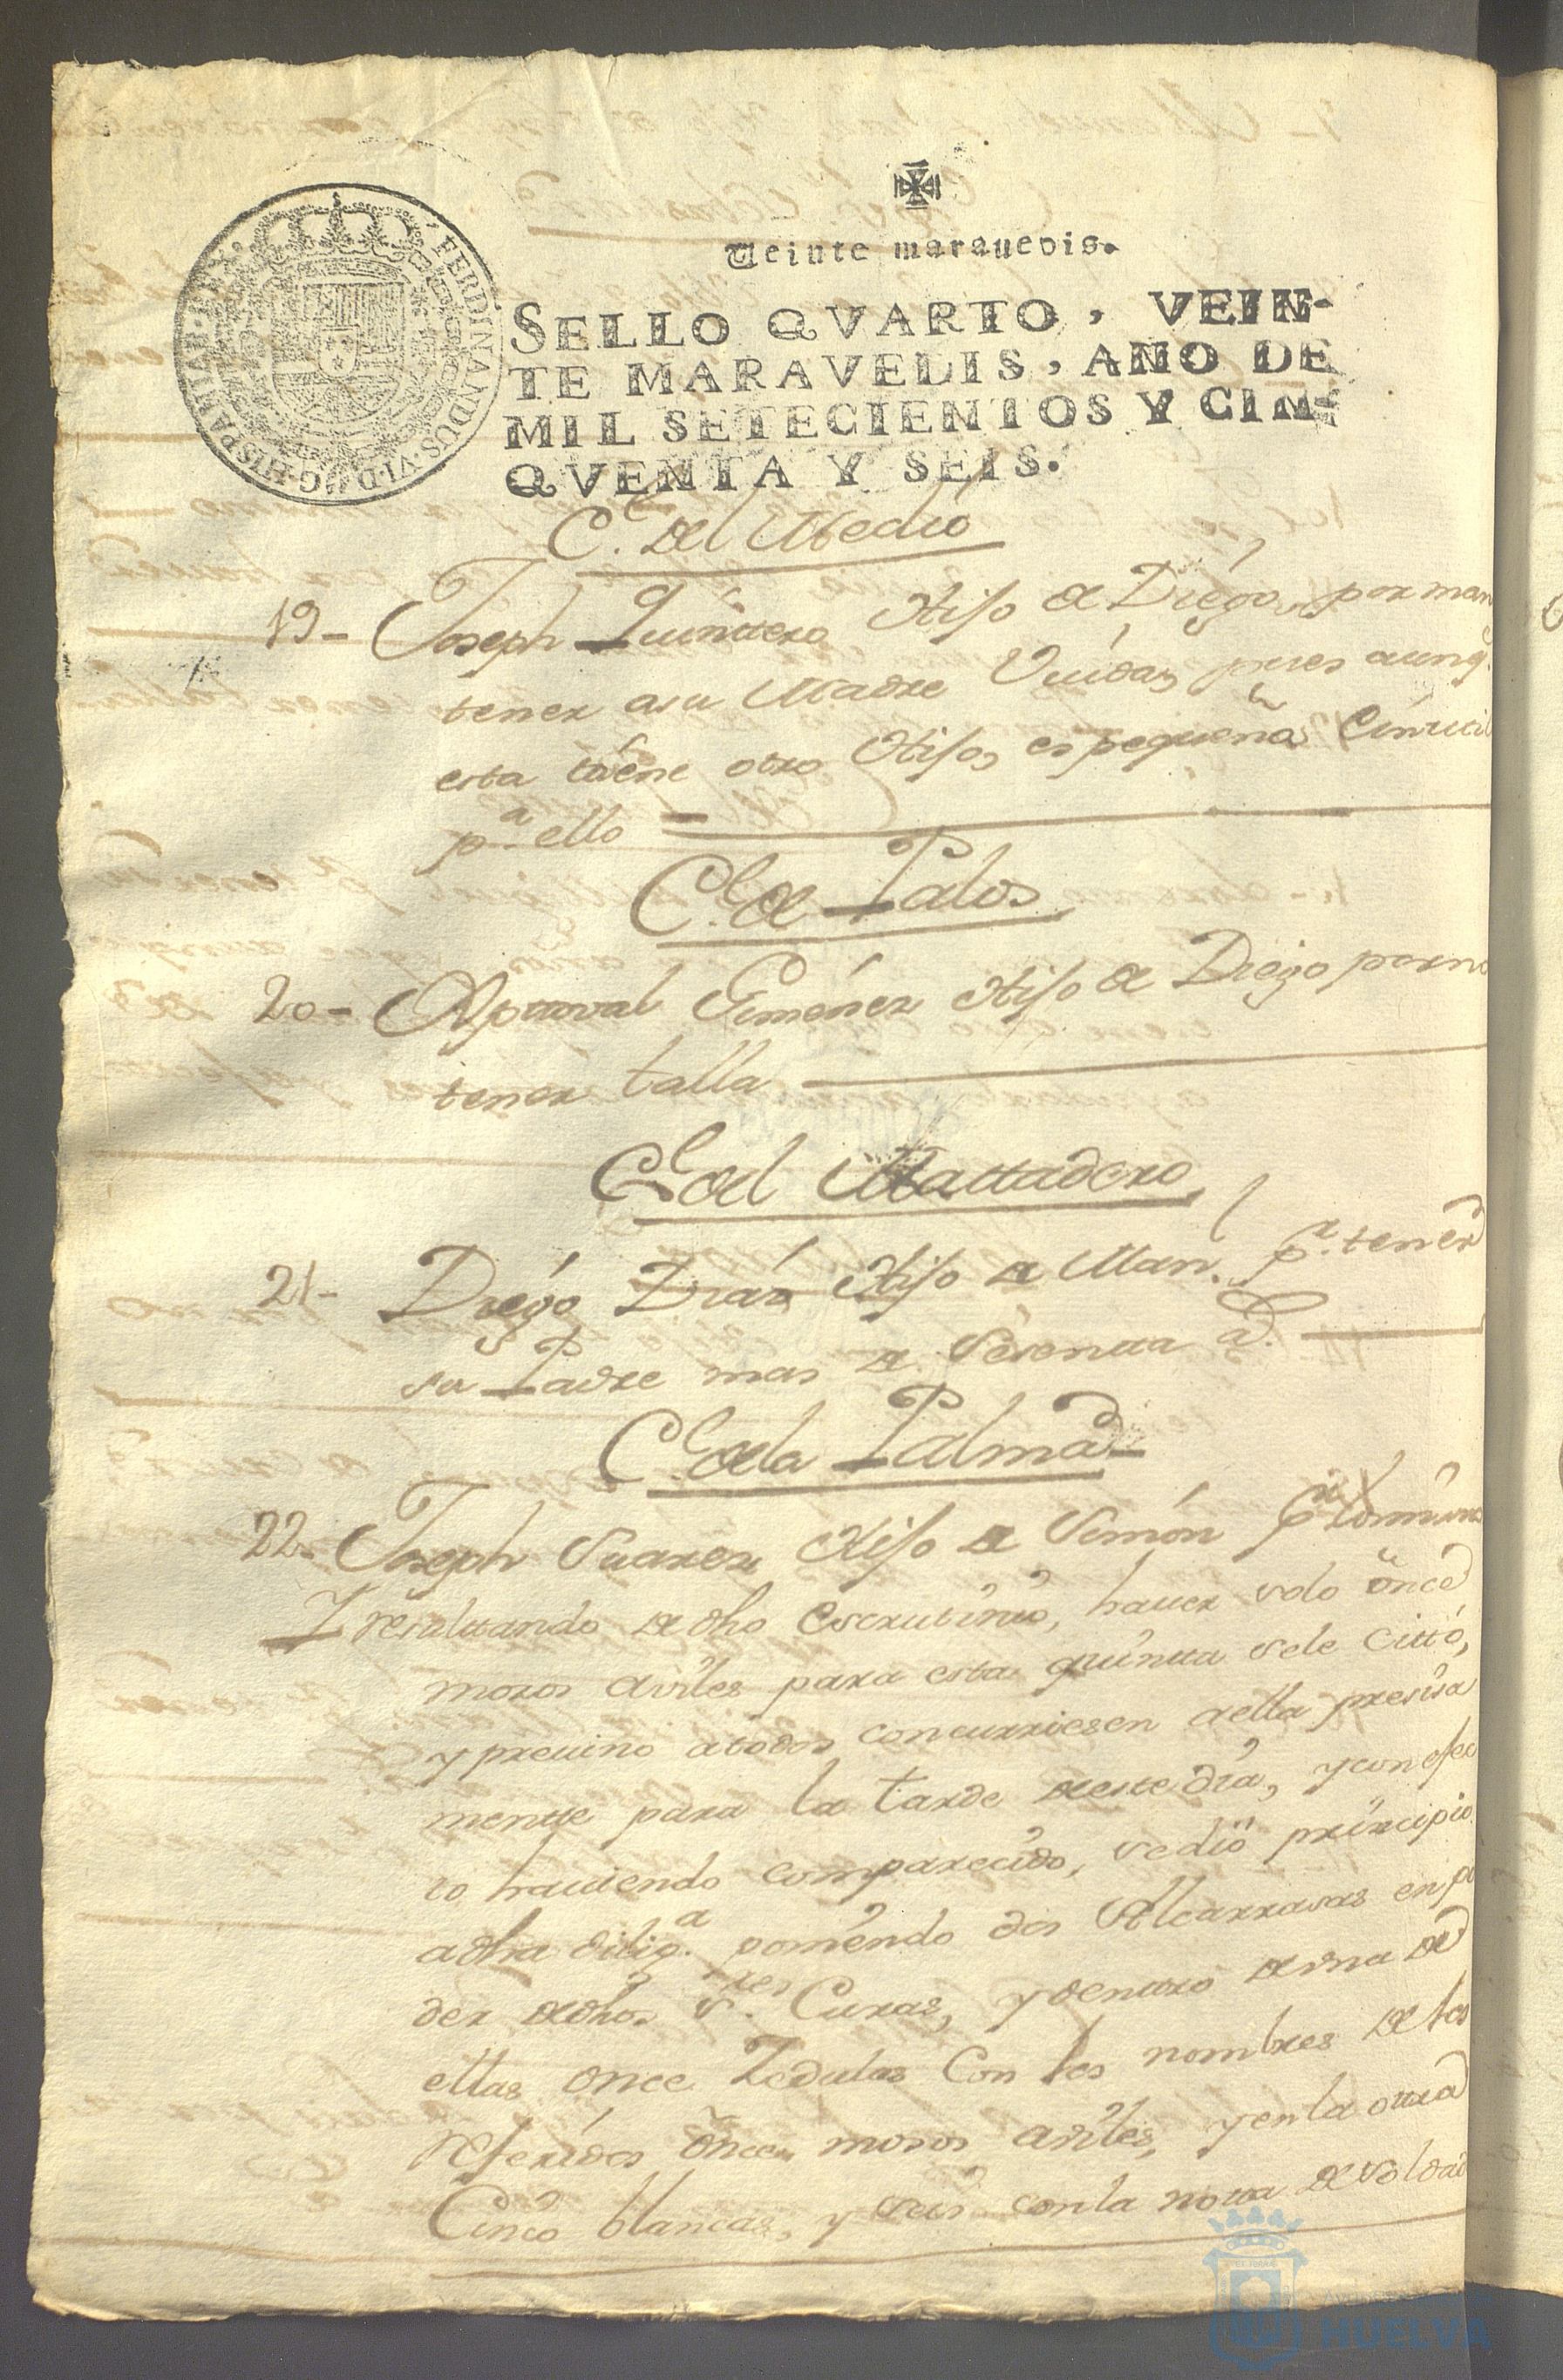 Veinte maravedis.
FERDINANDUS·VI·D·G·HISPANIAR·REX·
SELLO QVARTO, VEIN-
TE MARAVEDIS, AÑO DE
MIL SETECIENTOS Y CIN-
QVENTA Y SEIS.
C.e del Medio
19- Joseph Quinttero Hijo de Diego, por man
tener a su Madre Viuda, pues aunq.e
esta tiene otro Hijo, es pequeño é inutil
p.a ello
C.e de Palos
20- Christoval Gimenez Hijo de Diego por no
tener talla
C.e del Mattadero
21- Diego Diaz Hijo de Man.l p.r tener
su Padre mas de Sesentta a.s
C.e de la Palma
22- Joseph Suarez Hijo de Simón
Y resulttando de dho escrutinio, haver solo once
mozos aviles para esta quintta se le cittó,
y previno a todos concurriesen a ella presisa
mentte para la tarde de este dia, y con efec
to haviendo comparecido, se dió principio
a dha dilig.a poniendo dos Alcarrasas en po
der de dhos s.res Curas, y dentro de una de
ellas once Zedulas con los nombres de los
referidos once mozos aviles, y en la ottra
Cinco blancas, y seis con la notta de soldad
HUELVA